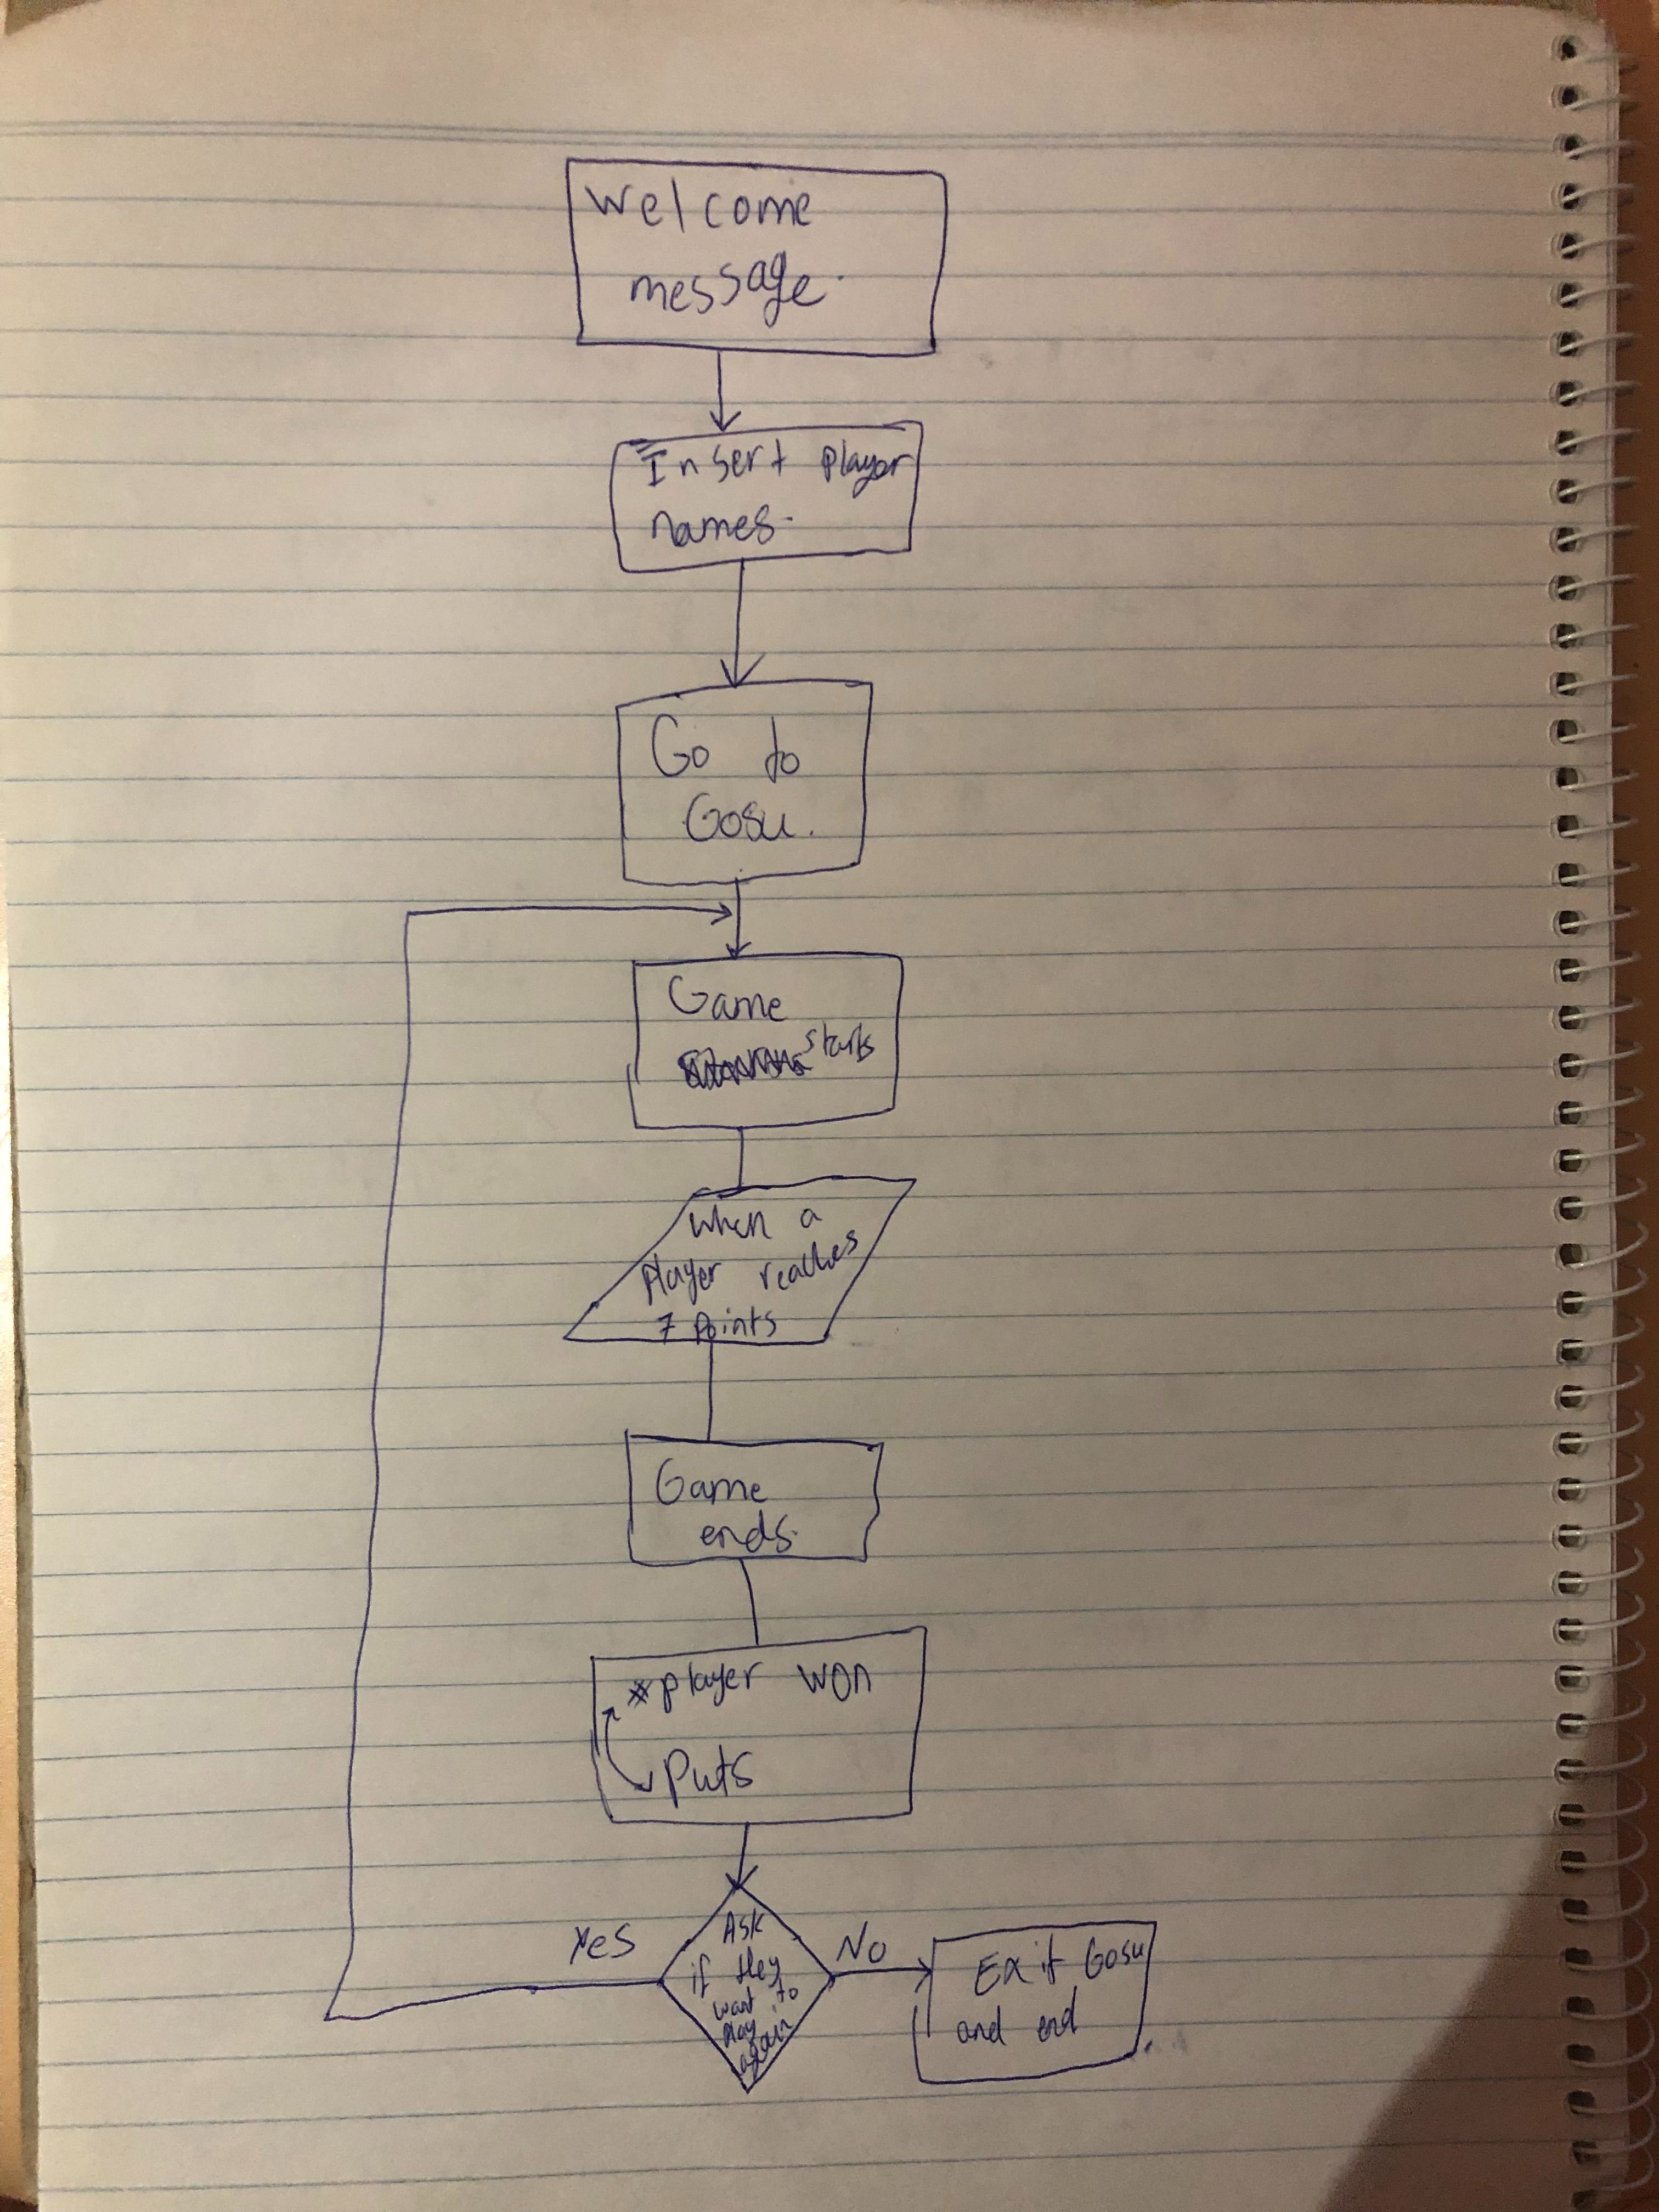 Welcome
message.
Insert player
names.
Go to
Gosu.
Game
starts
when a
player reaches
7 points
Game
ends.
*player won
Puts
Yes
Ask
if they
want to
play
again
No
Exit Gosu
and end